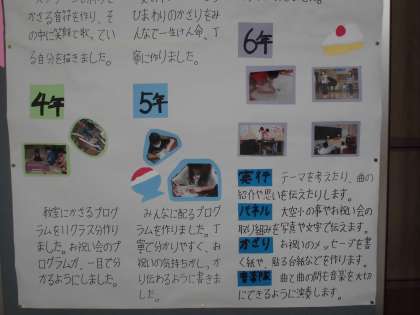 かざる音符を作り、そ
の中に笑顔で歌ってい
る自分を描きました。
ひまわりのかざりをみ
んなで一生けん命、丁
寧に作りました。
4年
教室にかざるプログ
ラムを11クラス分作り
ました。お祝い会のプ
ログラムが、一目で分
かるようにしました。
5年
みんなに配るプログ
ラムを作りました。丁
寧で分りやすく、お
祝いの気持ちがしっか
り伝わるように書きま
した。
6年
実行 テーマを考えたり、曲の
紹介や思いを伝えたりします。
パネル 大空小の事やお祝い会の
取り組みを写真や文字で伝えます。
かざり お祝いのメッセージを書
く紙や、貼る台紙などを作ります。
音楽隊 曲と曲の間も音楽を大切
にできるように演奏します。